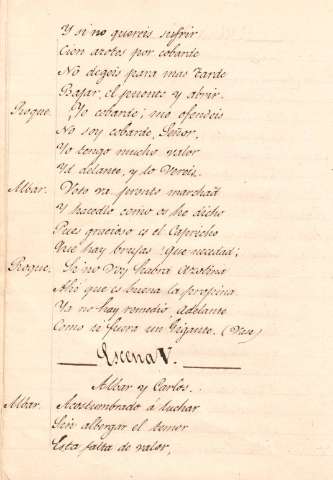 Y si no quereis sufrir
Cien azotes por cobarde
No dejeis para mas tarde
Bajar, el puente y abrir.
Roque. ¡Yo cobarde; me ofendeis
No soy cobarde, Señor,
Yo tengo mucho valor
Id delante, y lo vereis.
Albar. Vete ya pronto marchad
Y hacedlo como os he dicho
Pues gracioso es el Capricho
Que hay brujas! Que necedad;
Roque. Si no voy habra azotina
Ahi que es buena la propina
Ya no hay remedio, adelante
Como si fuera un Gigante. (Vase)
Escena V.
Albar y Carlos.
Albar. Acostumbrado á luchar
Sin albergar el temor
Esta falta de valor,